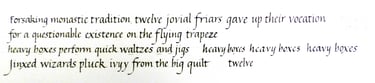 forsaking monastic tradition twelve jovial friars gave up their vocation
for a questionable existence on the flying trapeze
heavy boxes perform quick waltzes and jigs heavy boxes heavy boxes heavy boxes
Jinxed wizards pluck ivyy from the big quilt twelve